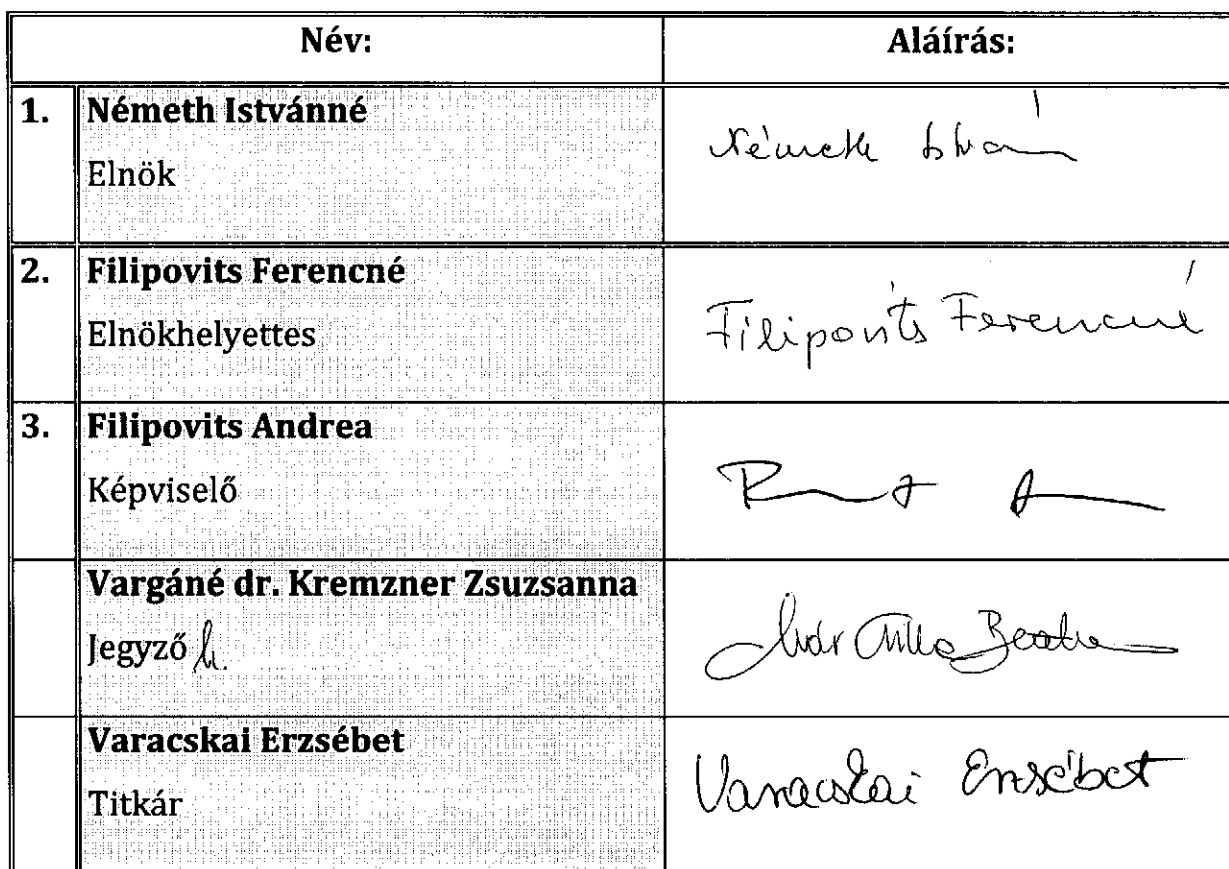 Név: Aláírás:
1. Németh Istvánné
Elnök
Németh
2. Filipovits Ferencné
Elnökhelyettes
Filipovits Ferencné
3. Filipovits Andrea
Képviselő
Vargáné dr. Kremzner Zsuzsanna
Jegyző h.
Varacskai Erzsébet
Titkár
Varacskai Erzsébet